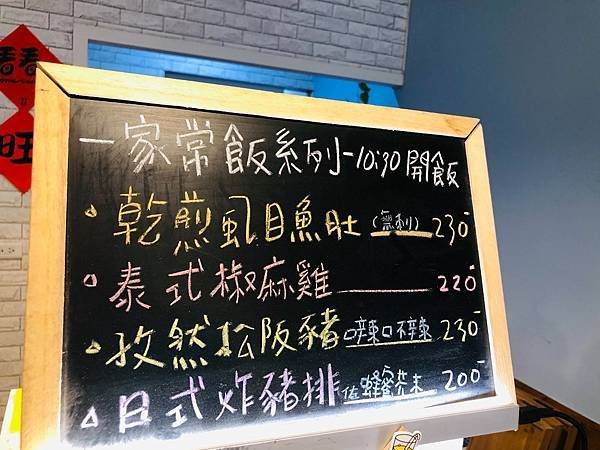 春春
旺
一家常飯系列-10:30開飯
乾煎虱目魚肚(無刺) 230
泰式椒麻雞 220
孜然松阪豬 □辣□不辣 230
日式炸豬排 佐蜂蜜芥末 200